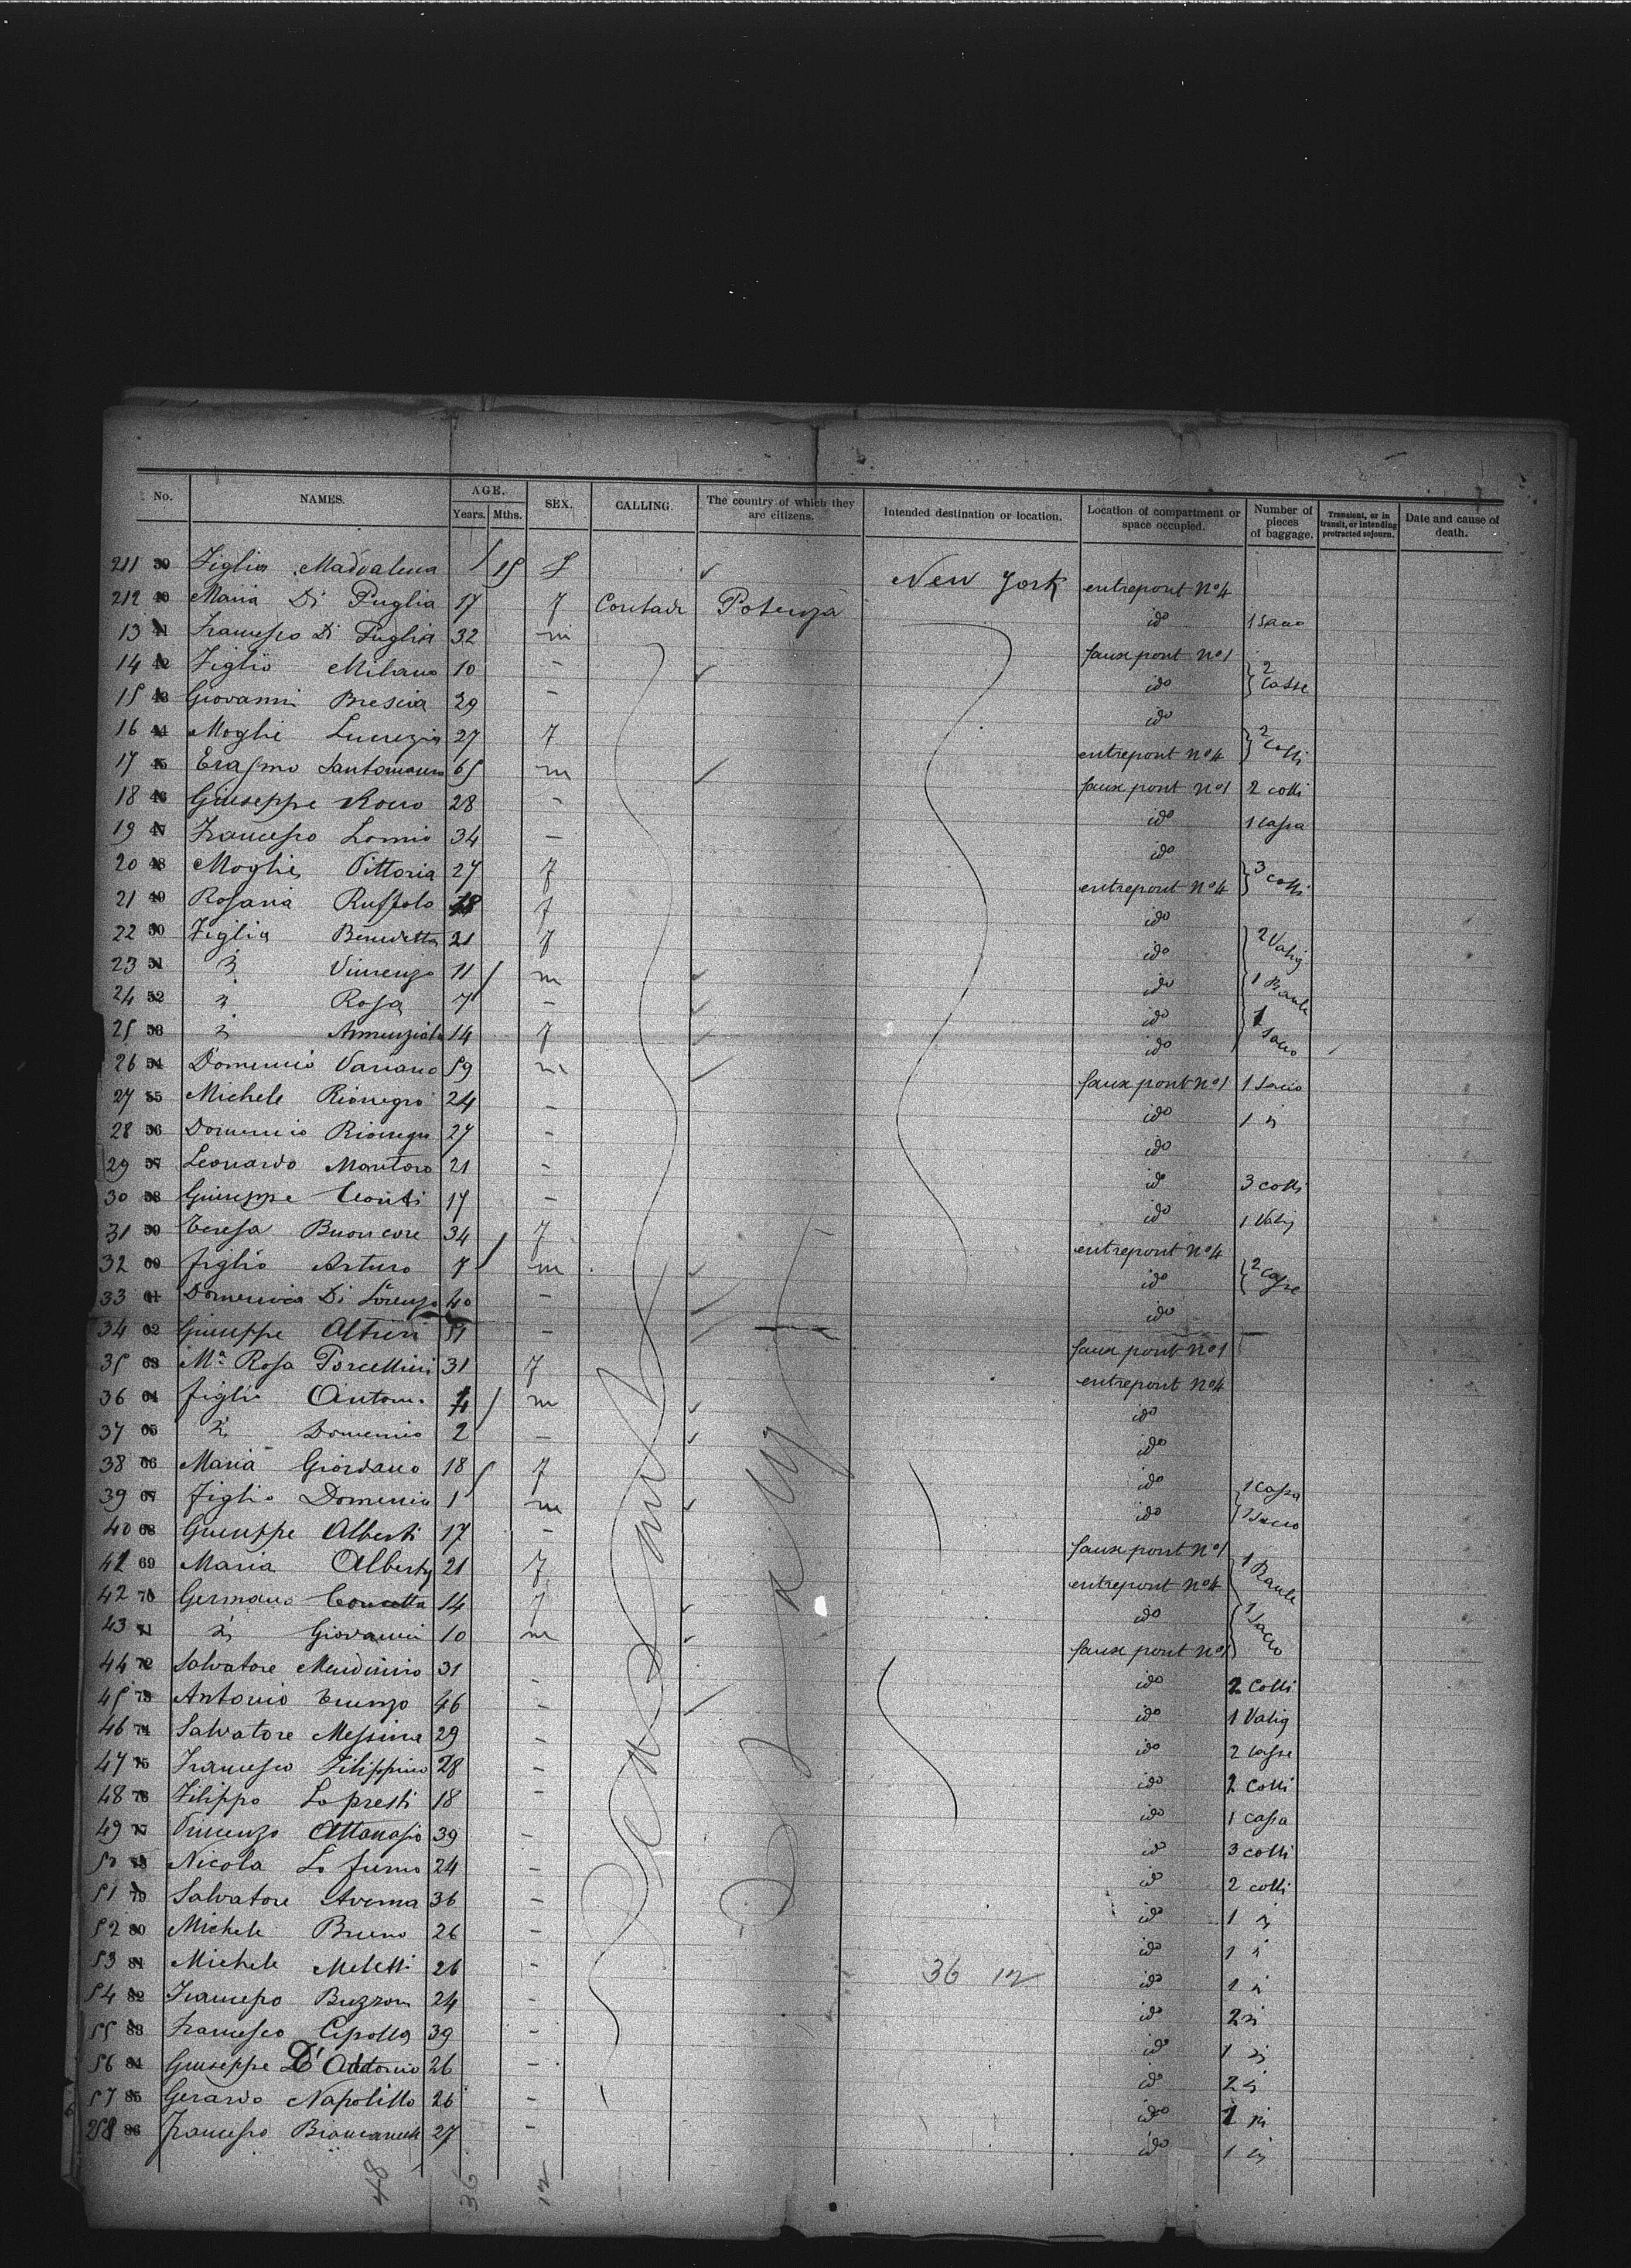 No. NAMES. AGE. Years. Mths. SEX. CALLING. The country of which they are citizens. Intended destination or location. Location of compartment or space occupied. Number of pieces of baggage. Transient, or in transit, or intending protracted sojourn. Date and cause of death.
211 39 Figlia Maddalena 15 f New York entrepont No 4
212 40 Maria Di Puglia 17 f Contadi Potenza ido 1 Sacco
13 41 Francesco Di Puglia 32 m faux pont No 1
14 42 Figlio Milano 10 - ido 2 Casse
15 43 Giovanni Brescia 29 - ido
16 44 Moglie Lucrezia 27 f entrepont No 4 2 Colli
17 45 Erasmo Santomauro 65 m faux pont No 1 2 colli
18 46 Giuseppe Rocco 28 - ido 1 Cassa
19 47 Francesco Lomio 34 - ido
20 48 Moglie Vittoria 27 f entrepont No 4 3 colli
21 49 Rosaria Ruffolo f ido
22 50 Figlia Benedetta 21 f ido 2 Valig
23 51 Vincenzo 11 m ido 1 Baule
24 52 Rosa 7 - ido
25 53 Annunziata 14 f ido 1 Sacco
26 54 Domenico Variano 59 m faux pont No 1 1 Sacco
27 55 Michele Rionegro 24 - ido 1
28 56 Domenico Rionegro 27 - ido
29 57 Leonardo Montoro 21 - ido 3 colli
30 58 Giuseppe Conti 17 - ido 1 Valig
31 59 Teresa Buoncore 34 f entrepont No 4
32 60 figlio Arturo 7 m ido 2 Casse
33 61 Domenica Di Lorenzo 40 - ido
34 62 Giuseppe Altieri 51 - faux pont No 1
35 63 Ma Rosa Porcellini 31 f entrepont No 4
36 64 figlio Antoni 4 m ido
37 65 Domenico 2 - ido
38 66 Maria Giordano 18 f ido 1 Cassa
39 67 figlio Domenico 1 m ido 1 Sacco
40 68 Giuseppe Alberti 17 - faux pont No 1
41 69 Maria Alberty 21 f entrepont No 4 1 Baule
42 70 Germano Concetta 14 f ido
43 71 Giovanni 10 m faux pont No 1 1 Sacco
44 72 Salvatore 31 - ido 2 Colli
45 73 Antonio 46 - ido 1 Valig
46 74 Salvatore Messina 29 - ido 2 Casse
47 75 Francesco Filippino 28 - ido 2 Colli
48 76 Filippo Lo presti 18 - ido 1 Cassa
49 77 Vincenzo Attanasio 39 - ido 3 colli
50 78 Nicola Lo 24 - ido 2 colli
51 79 Salvatore Averna 36 - ido 1
52 80 Michele Bruno 26 - ido 1
53 81 Michele Meletti 26 - 36 12 ido 1
54 82 Francesco Buzzoni 24 - ido 2
55 83 Francesco Cipolla 39 - ido 1
56 84 Giuseppe D' Antonio 26 - ido 2
57 85 Gerardo Napolillo 26 - ido 1
258 86 Francesco 27 - ido 1
48 36 12